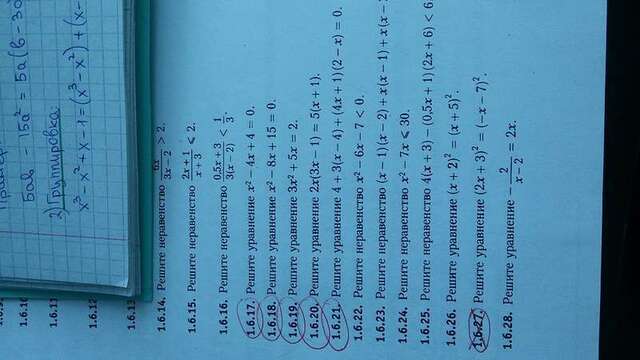 1.6.10
5aв − 15a² = 5a(в − 3
2) Группировка:
1.6.11
x³ − x² + x − 1 = (x³ − x²) + (x −
1.6.12
1.6.13
1.6.14. Решите неравенство 6x/(3x − 2) > 2.
1.6.15. Решите неравенство (2x + 1)/(x + 3) ⩽ 2.
1.6.16. Решите неравенство (0,5x + 3)/(3(x − 2)) < 1/3.
1.6.17. Решите уравнение x² − 4x + 4 = 0.
1.6.18. Решите уравнение x² − 8x + 15 = 0.
1.6.19. Решите уравнение 3x² + 5x = 2.
1.6.20. Решите уравнение 2x(3x − 1) = 5(x + 1).
1.6.21. Решите уравнение 4 + 3(x − 4) + (4x + 1)(2 − x) = 0.
1.6.22. Решите неравенство x² − 6x − 7 < 0.
1.6.23. Решите неравенство (x − 1)(x − 2) + x(x − 1) + x(x −
1.6.24. Решите неравенство x² − 7x ⩽ 30.
1.6.25. Решите неравенство 4(x + 3) − (0,5x + 1)(2x + 6) < 6
1.6.26. Решите уравнение (x + 2)² = (x + 5)².
1.6.27. Решите уравнение (2x + 3)² = (−x − 7)².
1.6.28. Решите уравнение −2/(x − 2) = 2x.